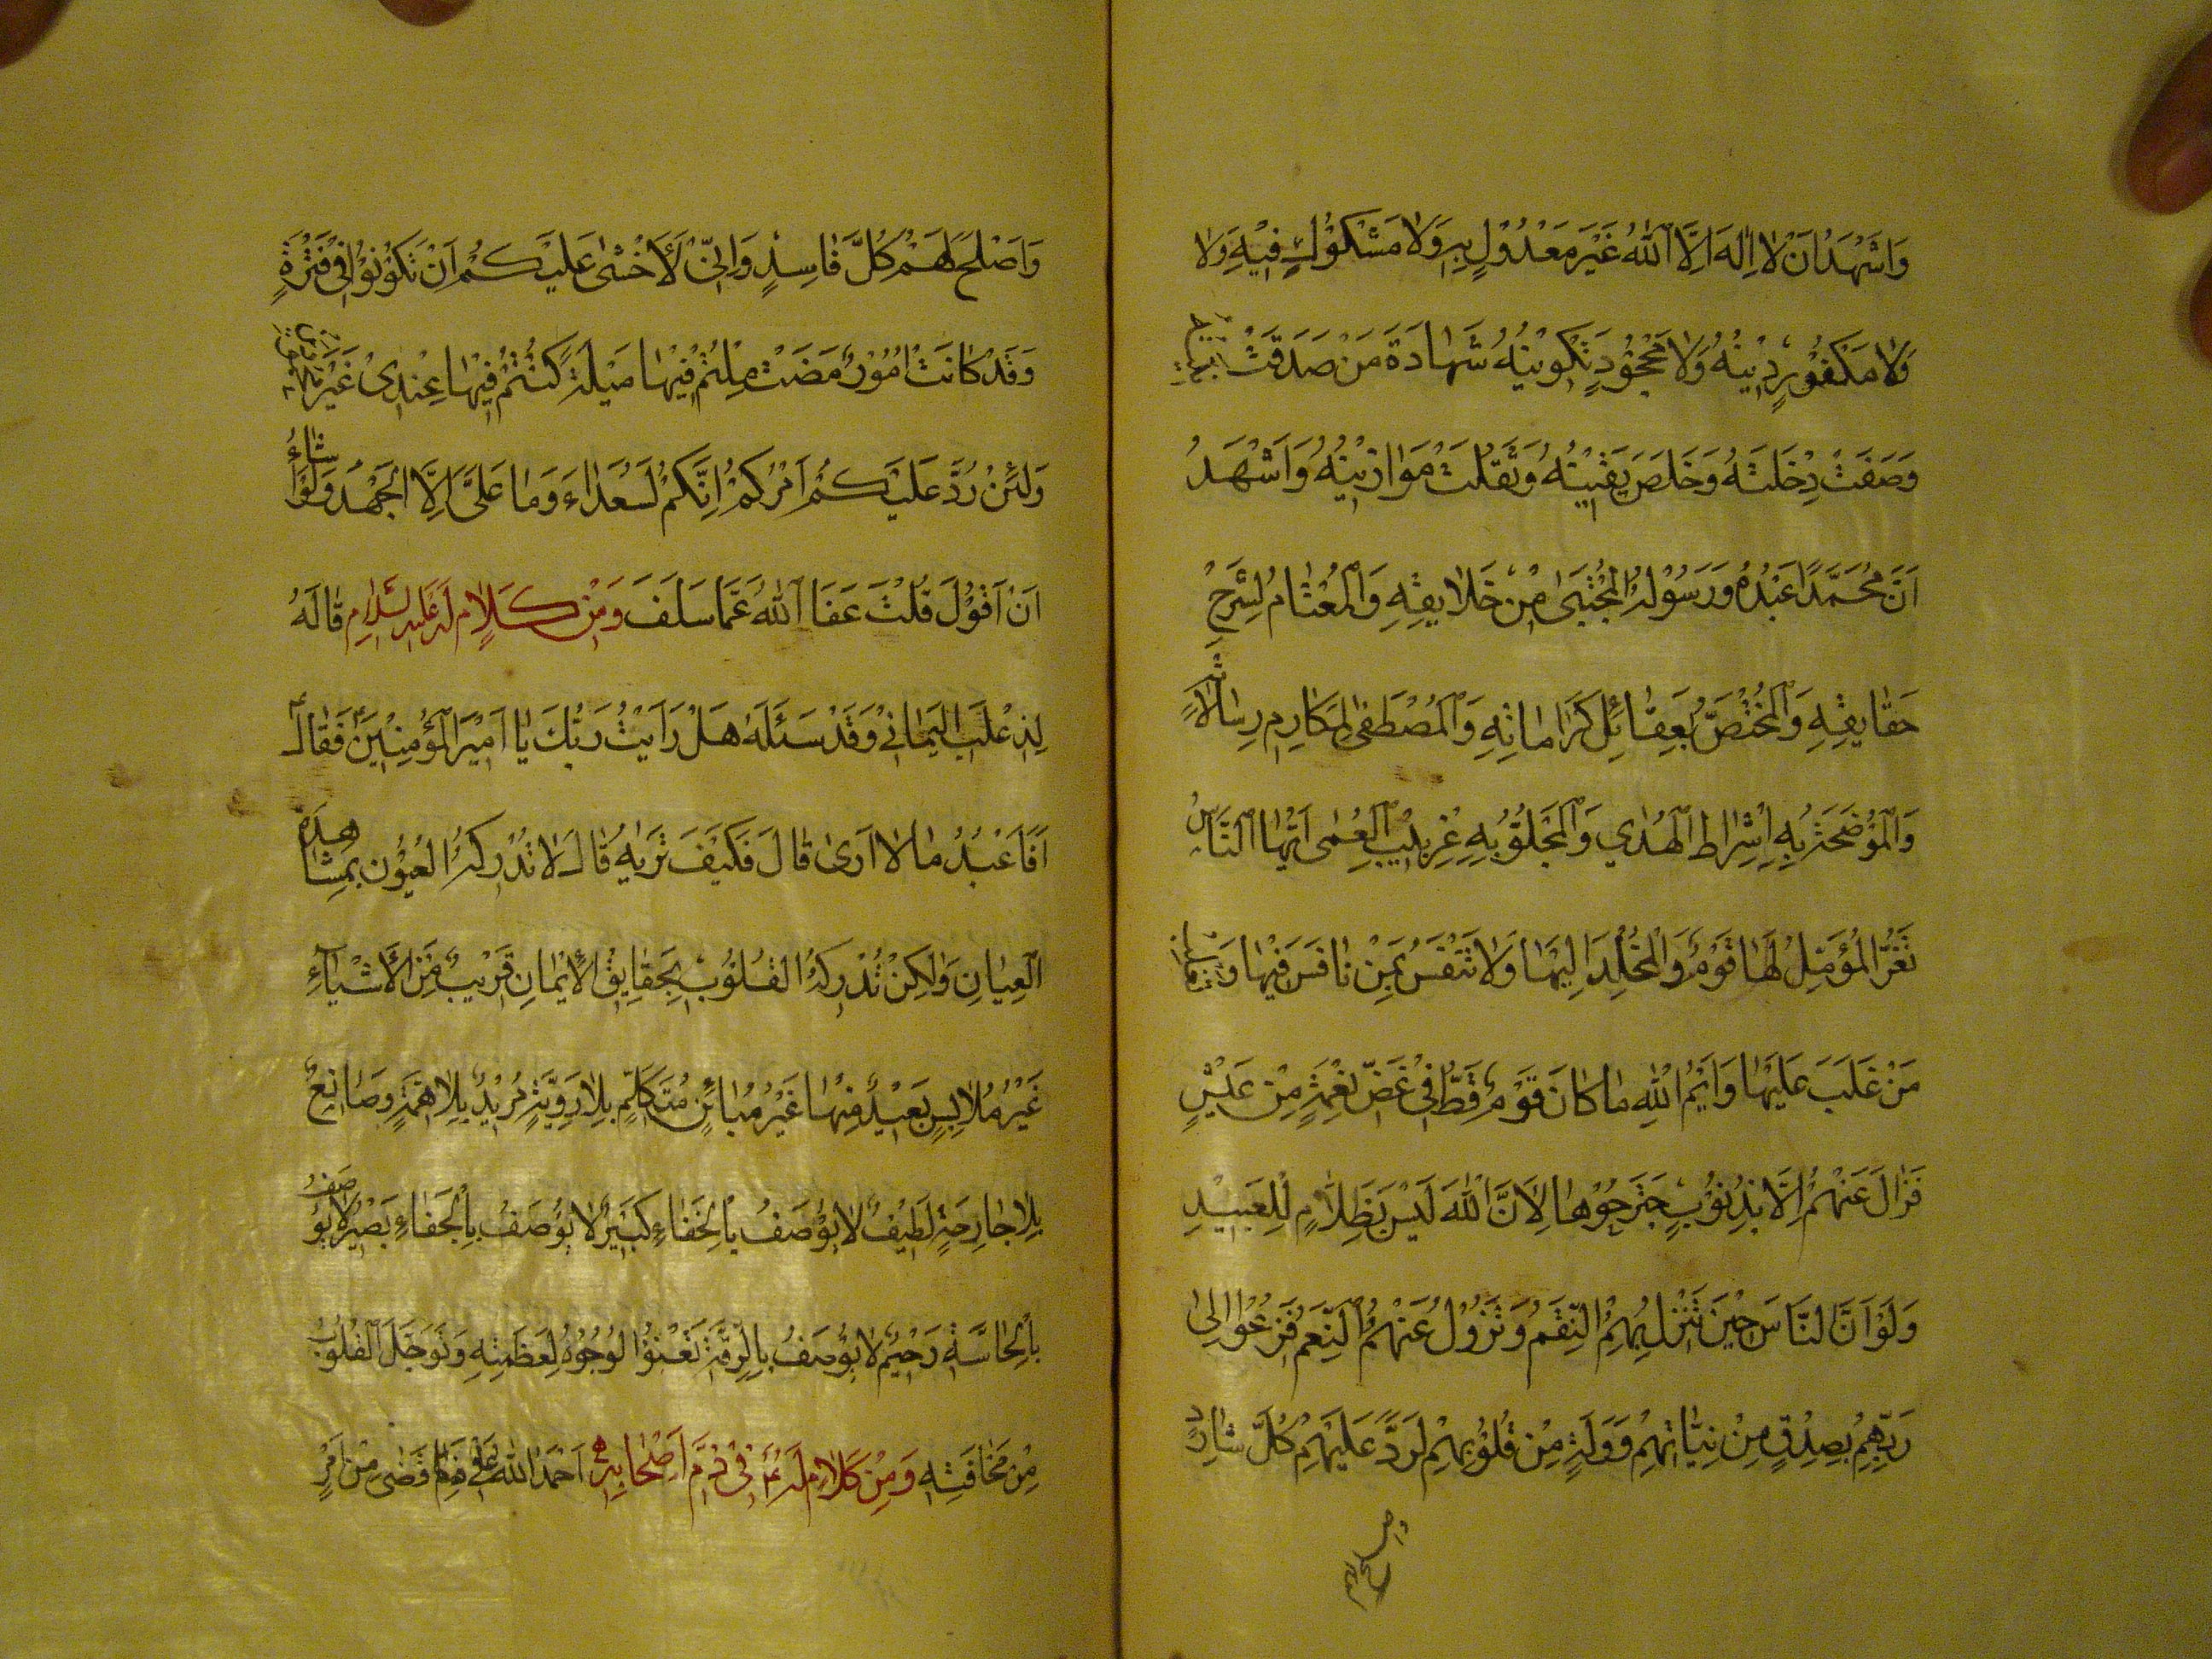 وَاَشْهَدُ اَنْ لا اِلٰهَ اِلَّا اللهُ غَيْرَ مَعْدُوْلٍ بِهِ وَلا مَشْكُوْكٍ فِيْهِ وَلا
وَلا مَكْفُوْرٍ دِيْنُهُ وَلا مَجْحُوْدٍ تَكْوِيْنُهُ شَهادَةَ مَنْ صَدَقَتْ نيته
وَصَفَتْ دِخْلَتُهُ وَخَلَصَ يَقِيْنُهُ وَثَقُلَتْ مَوازِيْنُهُ وَاَشْهَدُ
اَنَّ مُحَمَّدًا عَبْدُهُ وَرَسُوْلُهُ الْمُجْتَبىٰ مِنْ خَلايِقِهِ وَالْمُعْتامُ لِشَرْحِ
حَقايِقِهِ وَالْمُخْتَصُّ بِعَقائِلِ كَراماتِهِ وَالْمُصْطَفىٰ لِمَكارِمِ رِسالاتِهِ
وَالْمُوْضَحَةُ بِهِ اَشْراطُ الْهُدٰي وَالْمَجْلُوُّ بِهِ غِرْبِيْبُ الْعَمٰى اَيُّهَا النَّاسُ
تَغُرُّ الْمُؤَمِّلَ لَها قَوْمٌ وَالْمُخْلِدَ اِلَيْها وَلا تَنْفَسُ بِمَنْ نافَسَ فِيْها وَ تغلب
مَنْ غَلَبَ عَلَيْها وَاَيْمُ اللهِ ما كانَ قَوْمٌ قَطُّ فِيْ غَضِّ نِعْمَةٍ مِنْ عَيْشٍ
فَزالَ عَنْهُمْ اِلَّا بِذُنُوْبٍ جْتَرَحُوْها لِاَنَّ اللهَ لَيْسَ بِظَلَّامٍ لِلْعَبِيْدِ
وَلَوْ اَنَّ النَّاسَ حِيْنَ تَنْزِلُ بِهِمُ النِّقَمُ وَتَزُوْلُ عَنْهُمُ النِّعَمُ فَزِعُوْا اِلىٰ
رَبِّهِمْ بِصِدْقٍ مِنْ نِيَّاتِهِمْ وَوَلَهٍ مِنْ قُلُوْبِهِمْ لَرَدَّ عَلَيْهِمْ كُلَّ شارِدٍ
واصلح لهم
وَاَصْلَحَ لَهُمْ كُلَّ فاسِدٍ وَاِنِّيْ لَاَخْشىٰ عَلَيْكُمْ اَنْ تَكُوْنُوْا فِيْ فَتْرَةٍ
وَقَدْ كانَتْ اُمُوْرٌ مَضَتْ مِلْتُمْ فِيْها مَيْلَةً كُنْتُمْ فِيْها عِنْدِيْ غَيْرَ محمودين
وَلَئِنْ رُدَّ عَلَيْكُمْ اَمْرُكُمْ اِنَّكُمْ لَسُعَداءَ وَما عَلَيَّ اِلَّا الْجُهْدُ وَلَوْ اَشاءُ
اَنْ اَقُوْلَ قُلْتُ عَفَا اللهُ عَمَّا سَلَفَ وَمِنْ كَلامٍ لَهُ عَلَيْهِ السَّلامِ قالَهُ
لِذِعْلَبَ الْيَمانِيْ وَقَدْ سَئَلَهُ هَلْ رَاَيْتُ رَبَّكَ يا اَمِيْرَ الْمُؤْمِنِيْنَ فَقالَ
اَفَاَعْبُدُ ما لا اَرىٰ قالَ فَكَيْفَ تَرٰيهُ قالَ لا تُدْرِكُهُ الْعُيُوْنُ بِمُشاهَدَةِ
الْعِيانِ وَلكِنْ تُدْرِكُهُ الْقُلُوْبُ بِحَقايِقِ الْاِيْمانِ قَرِيْبٌ مِنَ الْاَشْياءِ
غَيْرُ مُلابِسٍ بَعِيْدٌ مِنْها غَيْرُ مُبائِنٍ مُتَكَلِّمٌ بِلا رَوِيَّةٍ مُرِيْدٌ بِلا هِمَّةٍ وَصانِعٌ
بِلا جارِحَةٍ لَطِيْفٌ لا يُوْصَفُ بِالْخَفاءِ كَبِيْرٌ لا يُوْصَفُ بِالْجَفاءِ بَصِيْرٌ لا يُوْصَفُ
بِالْحاسَّةِ رَحِيْمٌ لا يُوْصَفُ بِالرِّقَّةِ تَعْنُوْا الْوُجُوْهُ لِعَظَمَتِهِ وَتَوْجَلُ الْقُلُوْبُ
مِنْ مَخافَتِهِ وَمِنْ كَلامٍ لَهُ ع فِيْ ذَمِّ اَصْحابِهِ اَحْمَدُ اللهَ عَلىٰ ما قَضىٰ مِنْ اَمْرٍ